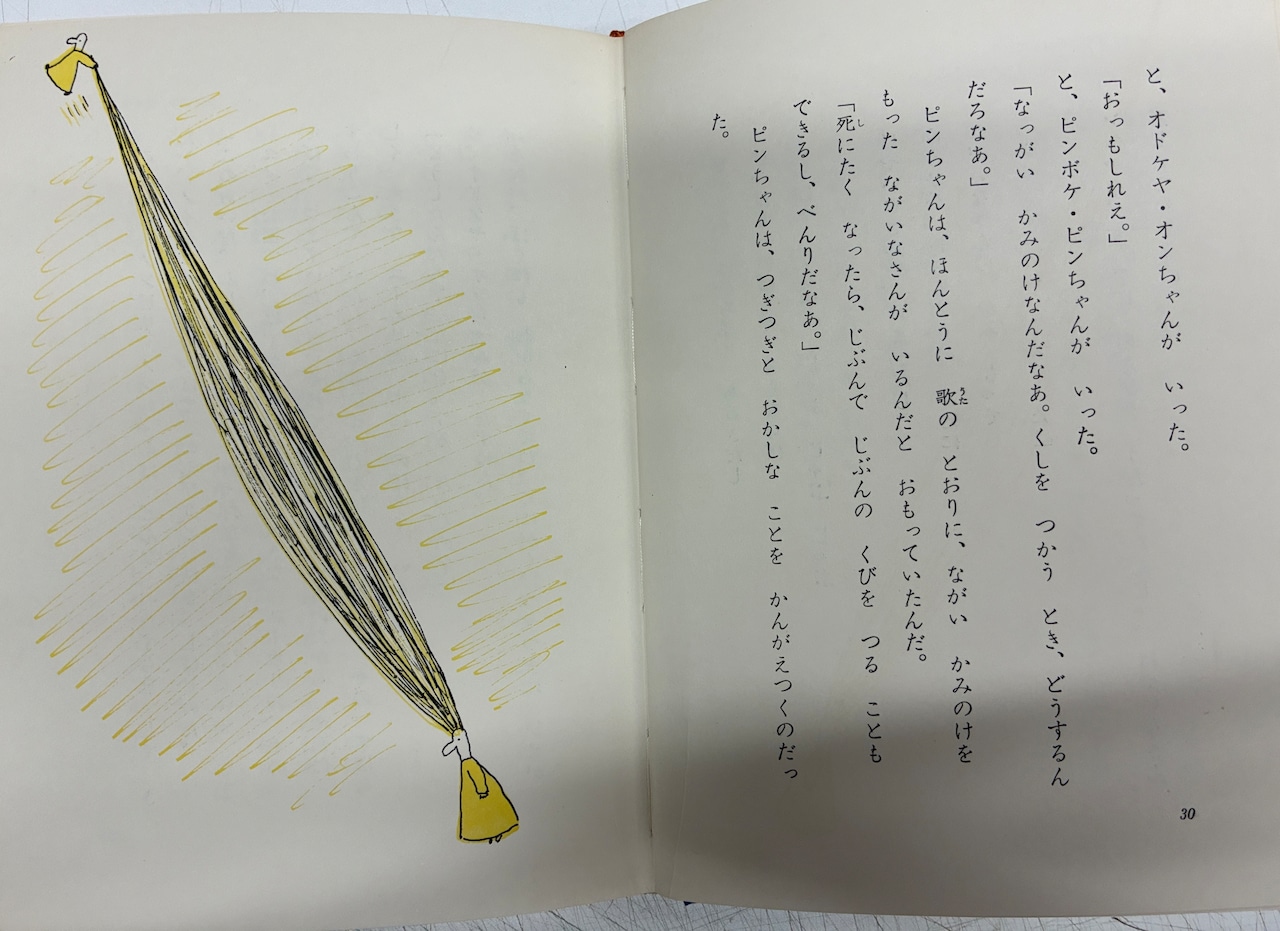 と、オドケヤ・オンちゃんが いった。
「おっもしれえ。」
と、ピンボケ・ピンちゃんが いった。
「なっがい かみのけなんだなあ。くしを つかう とき、どうするん
だろなあ。」
ピンちゃんは、ほんとうに 歌のとおりに、ながい かみのけを
もった ながいなさんが いるんだと おもっていたんだ。
「死にたく なったら、じぶんで じぶんの くびを つる ことも
できるし、べんりだなあ。」
ピンちゃんは、つぎつぎと おかしな ことを かんがえつくのだっ
た。
30